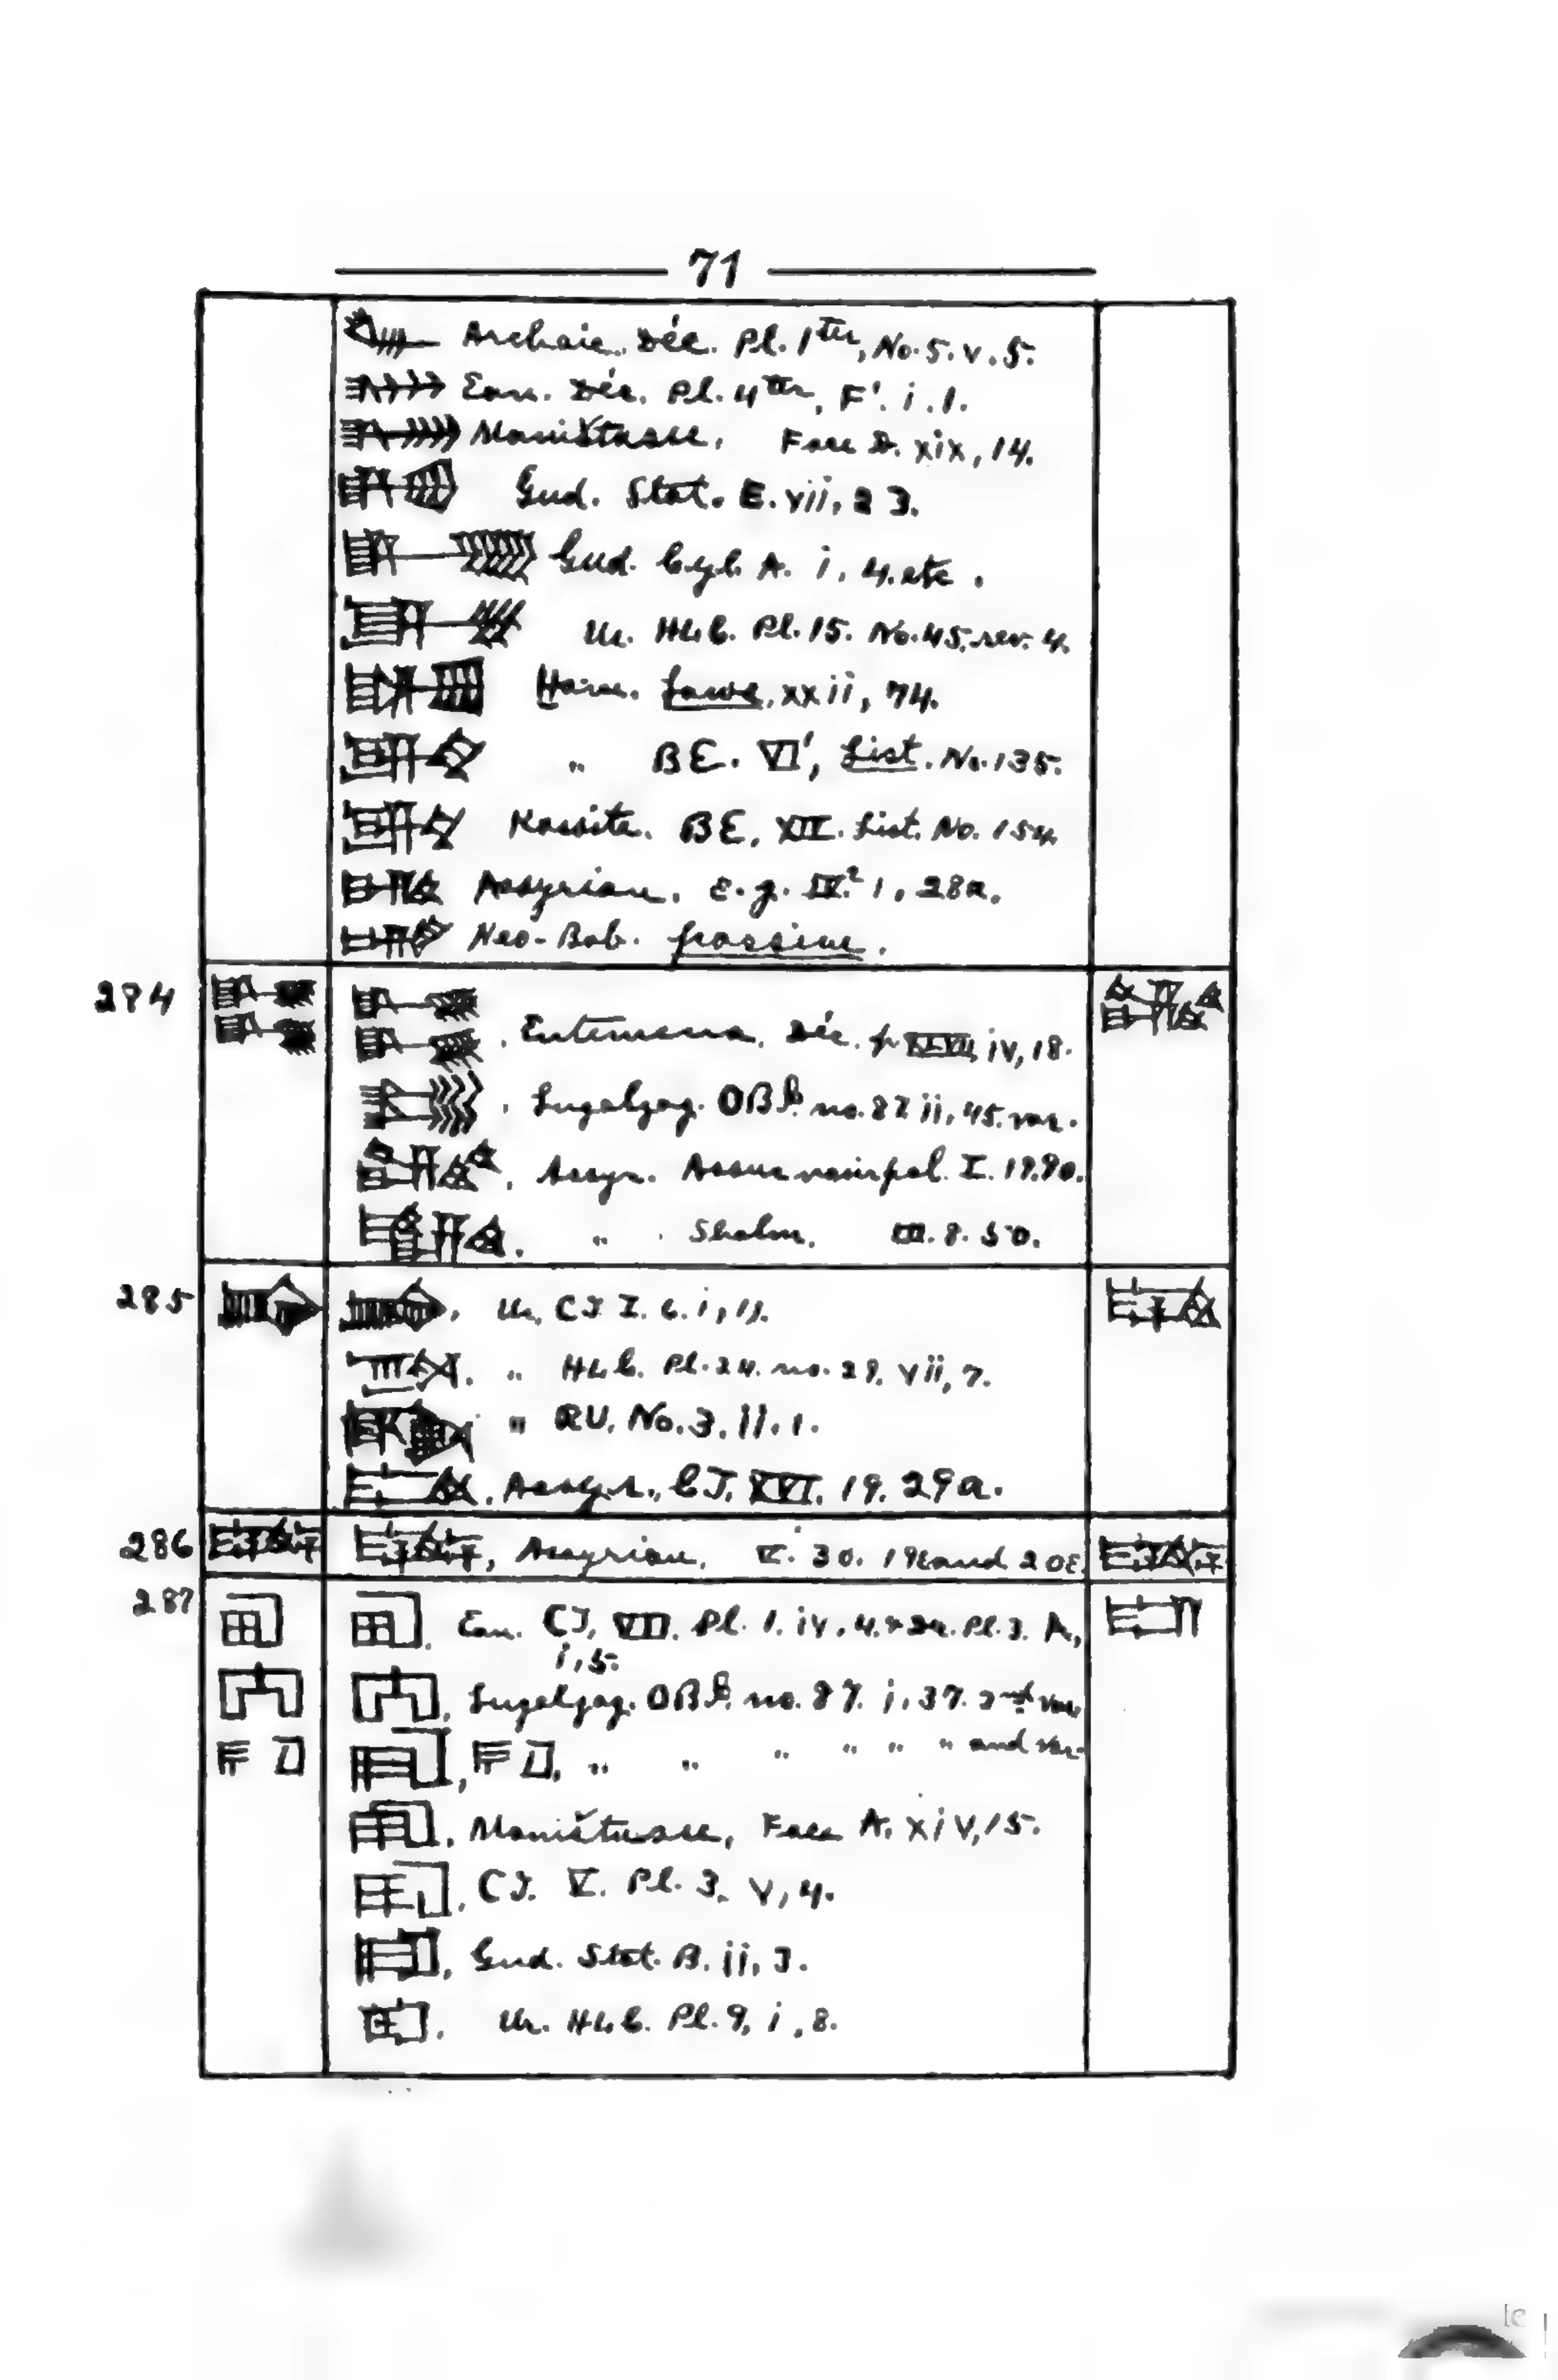 71
Archaic. Déc. Pl. 1ter, No. 5. v. 5.
Ean. Déc. Pl. 4ter, F'. i. 1.
Maništusu, Face D. xix, 14.
Gud. Stat. E. vii, 23.
Gud. Cyl. A. i, 4. etc.
Ur. HLC. Pl. 15. No. 45, rev. 4.
Ham. Laws, xxii, 74.
" BE. VI', List. No. 135.
Kassite. BE, XII. List. No. 154
Assyrian. E.g. IV.² 1, 28a.
Neo-Bab. passim.
284
Entemena. Déc. p XLVII, iv, 18.
Lugalzag. OBI. no. 87. ii, 45. var.
Assyr. Assurnasirpal. I. 19.90.
" Shalm. III. 8. 50.
285
Ur, CT I. 6. i, 11.
" HLC. Pl. 24. no. 29. vii, 7.
" RU. No. 3. 11. 1.
Assyr., CT. XVI. 19. 29a.
286
Assyrian. V. 30. 19E and 20E.
287
Ean. CT. VII. Pl. 1. iv. 4. Pl. 3. A,
i, 5.
Lugalzag. OBI. no. 87. i, 37. 2nd var.
" " " " " " and var.
Maništusu, Face A. xiv, 15.
CT. V. Pl. 3. v, 4.
Gud. Stat. B. ii, 3.
Ur. HLC. Pl. 9, i, 8.
le